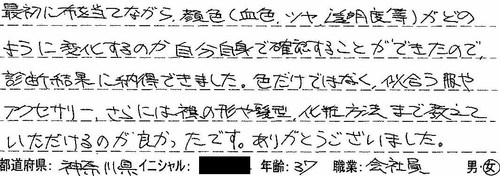 最初に布を当てながら、顔色(血色、ツヤ、透明度等)がどの
ように変化するのが自分自身で確認することができたので、
診断結果に納得できました。色だけではなく、似合う服や
アクセサリー、さらには襟の形や髪型、化粧方法まで教えて
いただけるのが良かったです。ありがとうございました。
都道府県:神奈川県 イニシャル: 年齢:37 職業:会社員 男・女